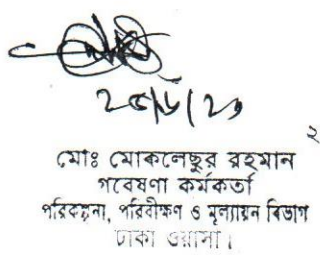 ২৫/৬/২৩
২
মোঃ মোকলেছুর রহমান
গবেষণা কর্মকর্তা
পরিকল্পনা, পরিবীক্ষণ ও মূল্যায়ন বিভাগ
ঢাকা ওয়াসা।